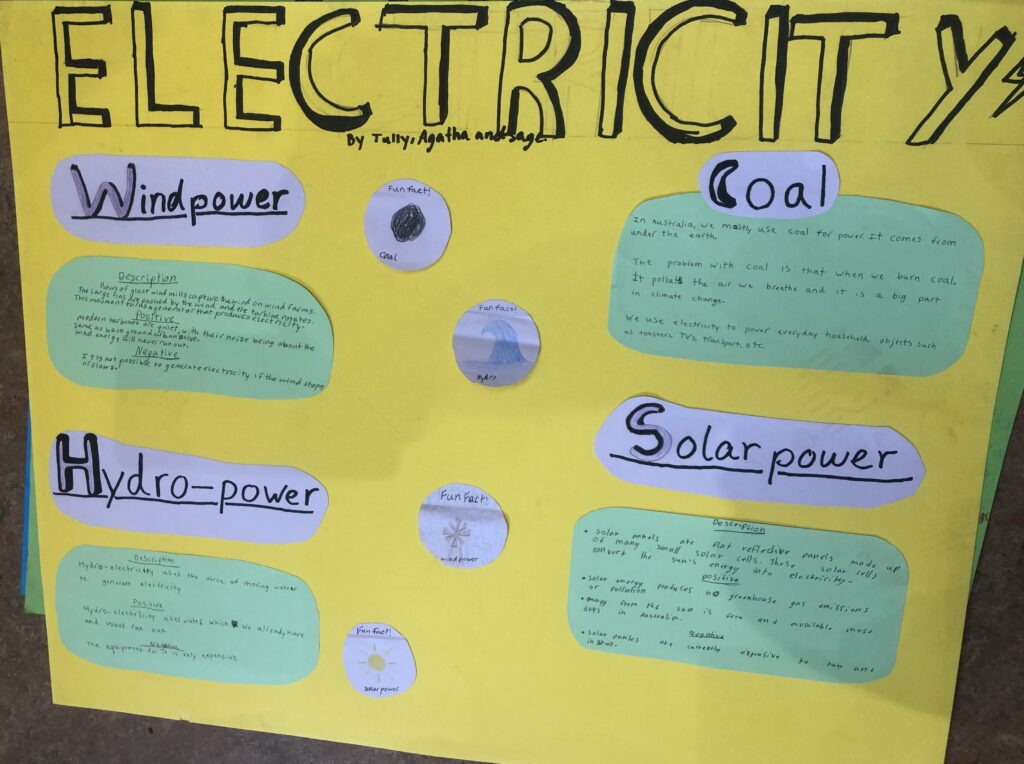 ELECTRICITY
By Tully, Agatha and Sage
Wind power
Description
Rows of giant wind mills capture the wind on wind farms.
The large fins are pushed by the wind and the turbine rotates.
This movment turns a generator that produces electricity.
Positive
modern turbones are quiet, with their noise being about the
same as background urban noise.
wind energy will never run out.
Negative
It is not possible to generate electricity if the wind stops
or slows.
Hydro-power
Description
Hydro-electricity uses the force of moving water
to generate electricity
Positive
Hydro-electricity uses water which we already have
and won't run out
Negative
The equipment for it is very expensive
Fun fact!
Coal
Fun fact!
Hydro
Fun Fact!
wind power
Fun fact!
solar power
Coal
In Australia, we mostly use coal for power. It comes from
under the earth.
The problem with coal is that when we burn coal,
It polluts the air we breathe and it is a big part
in climate change.
We use electricity to power everyday household objects such
as toasters, TVs, transport, etc.
Solar power
Description
• solar panels are flat reflective panels made up
of many small solar cells. These solar cells
convert the sun's energy into electricity.
positive
• solar energy produces no greenhouse gas emissions
or pollution
• energy from the sun is free and available most
days in Australia.
Negative
• solar panles are currently expensive to and
install.